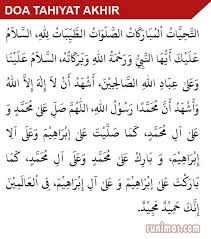 DOA TAHIYAT AKHIR
التَّحِيَّاتُ الْمُبَارَكَاتُ الصَّلَوَاتُ الطَّيِّبَاتُ لِلَّهِ، السَّلَامُ
عَلَيْكَ أَيُّهَا النَّبِيُّ وَرَحْمَةُ اللهِ وَبَرَكَاتُهُ، السَّلَامُ عَلَيْنَا
وَعَلَى عِبَادِ اللهِ الصَّالِحِيْنَ، أَشْهَدُ أَنْ لَا إِلَهَ إِلَّا اللهُ
وَأَشْهَدُ أَنَّ مُحَمَّدًا رَسُوْلُ اللهِ، اللَّهُمَّ صَلِّ عَلَى مُحَمَّدٍ وَ
عَلَى آلِ مُحَمَّدٍ، كَمَا صَلَّيْتَ عَلَى إِبْرَاهِيْمَ وَعَلَى آلِ
إِبْرَاهِيْمَ، وَ بَارِكْ عَلَى مُحَمَّدٍ وَ عَلَى آلِ مُحَمَّدٍ، كَمَا
بَارَكْتَ عَلَى إِبْرَاهِيْمَ وَ عَلَى آلِ إِبْرَاهِيْمَ، فِى الْعَالَمِيْنَ
إِنَّكَ حَمِيْدٌ مَجِيْدٌ.
runimas.com